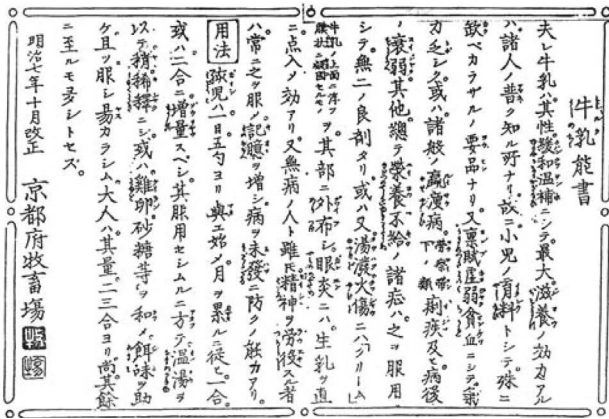 牛乳能書
夫レ牛乳ハ其性緩和温補ニシテ最大滋養ノ効力アル
ハ諸人ノ普ク知ル所ナリ故ニ小児ノ育料トシテ殊ニ
欽ベカラサルノ要品ナリ又稟賦虚弱貧血ニシテ気
力乏シク或ハ諸般ノ羸痩病帯祭帯下ノ類痢疾及ヒ病後
ノ衰弱其他総テ栄養不給ノ諸症ハ之ヲ服用
シテ無二ノ良剤タリ或ハ又湯溌火傷ニハクリーム
牛乳ノ上面ニ浮ヲ
ヲ其部ニ外布シ眼炎ニハ生乳ヲ直
ニ点入メ効アリ又無病ノ人ト雖トモ精神ヲ労役スル者
ハ常ニ之ヲ服メ記臆ヲ増シ病ヲ未発ニ防クノ能力アリ
用法 孩児ハ一日五勺ヨリ與エ始メ月ヲ累ルニ従ヒ一合
或ハ二合ニ増量スベシ其服用セシムルニ方テ温湯ヲ
以テ稍稀釋ニシ或ハ雞卵砂糖等ヲ和メ餌味ヲ助
ケ且ツ服シ易カラシム大人ハ其量二三合ヨリ尚其餘
ニ至ルモ多シトセズ
明治七年十月改正 京都府牧畜場